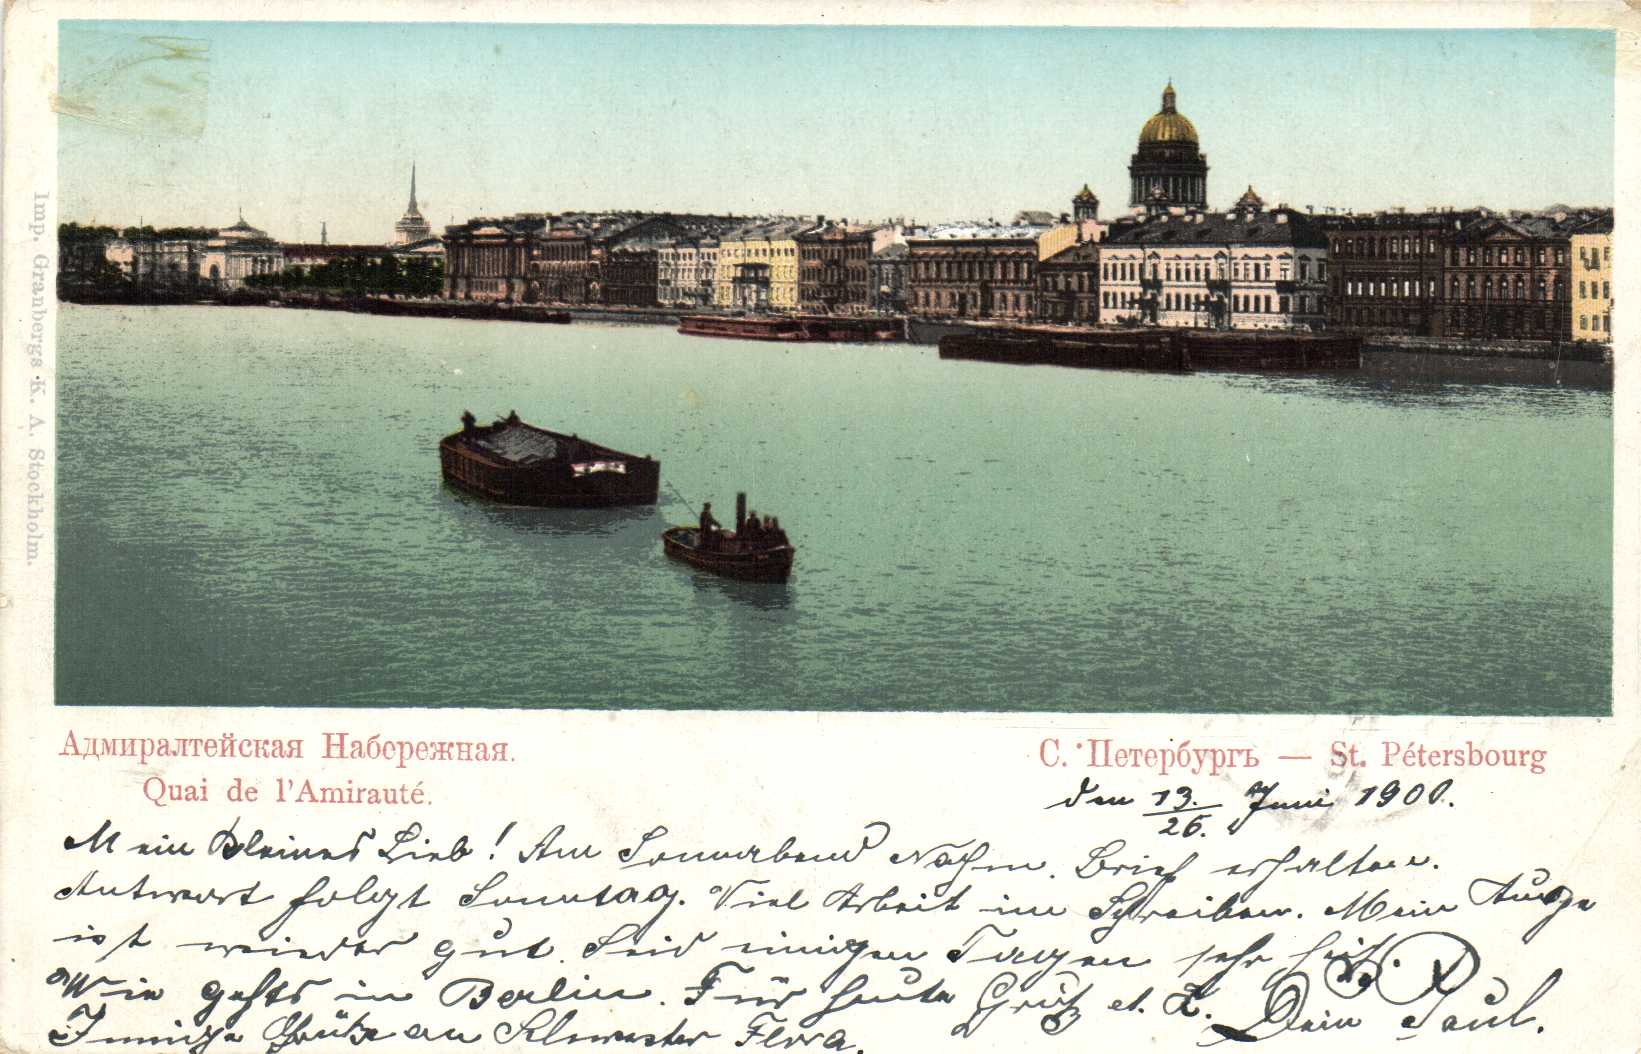 Imp. Granbergs K. A. Stockholm.
Адмиралтейская Набережная.
Quai de l'Amirauté.
С. Петербургъ — St. Pétersbourg
den 13./26. Juni 1900.
Mein kleines Lieb! Am Sonnabend Nachm. Brief erhalten.
Antwort folgt Sonntag. Viel Arbeit im Schreiben. Mein Auge
ist wieder gut. Seid einigen Tagen sehr heiß.
Wie gehts in Berlin. Für heute Gruß et. K.
Innige Grüße an Schwester Flora. Dein Paul.